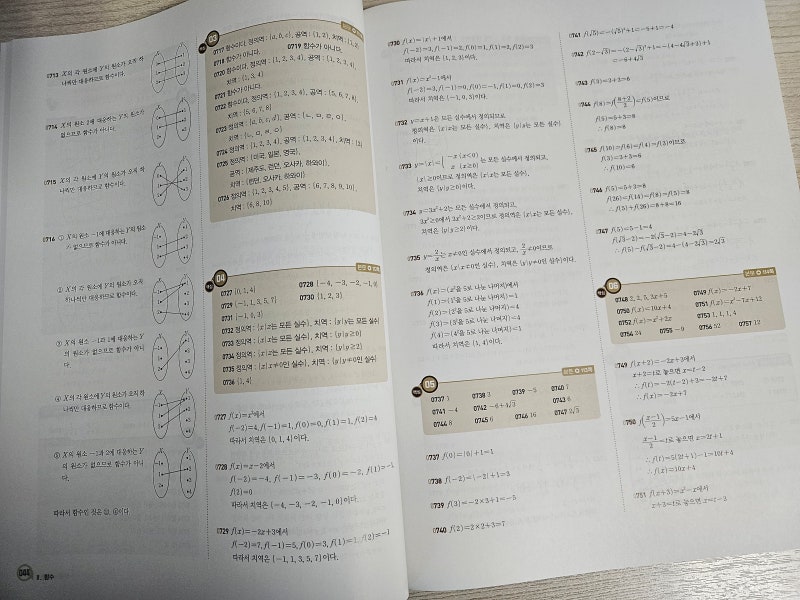 0713 X의 각 원소에 Y의 원소가 오직 하
나씩만 대응하므로 함수이다.
0714 X의 원소 2에 대응하는 Y의 원소가
없으므로 함수가 아니다.
0715 X의 각 원소에 Y의 원소가 오직 하
나씩만 대응하므로 함수이다.
0716 ① X의 원소 -1에 대응하는 Y의 원소
가 없으므로 함수가 아니다.
② X의 각 원소에 Y의 원소가 오직
하나씩만 대응하므로 함수이다.
의 원소가 없으므로 함수가 아니다.
X의 각 원소에 Y의 원소가 오직 하
나씩만 대응하므로 함수이다.
⑤ X의 원소
의 원소가 없으므로 함수가 아니
다.
따라서 함수인 것은
II. 함수
유형 03
0717 함수이다, 정의역 : {a, b, c}, 공역 : {1, 2}, 치역 : {1, 2}
0718 함수가 아니다. 0719 함수가 아니다.
0720 함수이다, 정의역 : {1, 2, 3, 4}, 공역 : {1, 2, 3, 4},
치역 : {1, 3, 4}
0721 함수가 아니다.
0722 함수이다, 정의역 : {1, 2, 3, 4}, 공역 : {5, 6, 7, 8},
치역 : {5, 6, 7, 8}
0723 정의역 : {a, b, c, d}, 공역 : {ㄴ, ㅁ, ㅁ, ㅇ},
0724 정의역 : {1, 2, 3, 4}, 공역 : {1, 2, 3, 4}, 치역 : {3}
0725 정의역 : {미국, 일본, 영국},
공역 : {제주도, 런던, 오사카, 하와이},
치역 : {런던, 오사카, 하와이}
0726 정의역 : {1, 2, 3, 4, 5}, 공역 : {6, 7, 8, 9, 10},
치역 : {6, 8, 10}
04
0727 {0, 1, 4} 0728 {-4, -3, -2, -1, 0}
0729 {-1, 1, 3, 5, 7} 0730 {1, 2, 3}
0731 {-1, 0, 3}
0732 정의역 : {x|x는 모든 실수}, 치역 : {y|y는 모든 실수}
0733 정의역 : {x|x는 모든 실수}, 치역 : {y|y≥0}
0734 정의역 : {x|x는 모든 실수}, 치역 : {y|y≥2}
0735 정의역 : {x|x≠0인 실수}, 치역 : {y|y≠0인 실수}
0736 {1, 4}
0727 f(x)=x²에서
f(-2)=4, f(-1)=1, f(0)=0, f(1)=1, f(2)=4
따라서 치역은 {0, 1, 4}이다.
0728 f(x)=x-2에서
f(-2)=-4, f(-1)=-3, f(0)=-2, f(1)=-1
f(2)=0
따라서 치역은 {-4, -3, -2, -1, 0}이다.
0729 f(x)=-2x+3에서
f(-2)=7, f(-1)=5, f(0)=3, f(1)=1, f(2)=-1
따라서 치역은 {-1, 1, 3, 5, 7}이다.
0730 f(x)=|x|+1에서
f(-2)=3, f(-1)=2, f(0)=1, f(1)=2, f(2)=3
따라서 치역은 {1, 2, 3}이다.
0731 f(x)=x²-1에서
f(-2)=3, f(-1)=0, f(0)=-1, f(1)=0, f(2)=3
따라서 치역은 {-1, 0, 3}이다.
0732 y=x+1은 모든 실수에서 정의되므로
정의역은 {x|x는 모든 실수}, 치역은 {y|y는 모든 실수}
이다.
0733 y=|x|={ -x (x<0)
x (x≥0) 는 모든 실수에서 정의되고,
|x|≥0이므로 정의역은 {x|x는 모든 실수},
치역은 {y|y≥0}이다.
0734 y=3x²+2는 모든 실수에서 정의되고,
3x²≥0에서 3x²+2≥2이므로 정의역은 {x|x는 모든 실수},
치역은 {y|y≥2}이다.
0735 y=2/x는 x≠0인 실수에서 정의되고, 2/x≠0이므로
정의역은 {x|x≠0인 실수}, 치역은 {y|y≠0인 실수}이다.
0736 f(x)=(x²을 5로 나눈 나머지)에서
f(1)=(1²을 5로 나눈 나머지)=1
f(2)=(2²을 5로 나눈 나머지)=4
f(3)=(3²을 5로 나눈 나머지)=4
f(4)=(4²을 5로 나눈 나머지)=1
따라서 치역은 {1, 4}이다.
05
0737 1 0738 3 0739 -5 0740 7
0741 -4 0742 -6+4√3 0743 6
0744 8 0745 6 0746 16 0747 2√3
0737 f(0)=|0|+1=1
0738 f(-2)=|-2|+1=3
0739 f(3)=-2×3+1=-5
0740 f(2)=2×2+3=7
0741 f(√5)=-(√5)²+1=-5+1=-4
0742 f(2-√3)=-(2-√3)²+1=-(4-4√3+3)+1
=-6+4√3
0743 f(3)=3+3=6
0744 f(8)=f((8+2)/2)=f(5)이므로
f(5)=5+3=8
∴ f(8)=8
0745 f(10)=f(6)=f(4)=f(3)이므로
f(3)=3+3=6
∴ f(10)=6
0746 f(5)=5+3=8
f(26)=f(14)=f(8)=f(5)=8
∴ f(5)+f(26)=8+8=16
0747 f(5)=5-1=4
f(√3-2)=-2(√3-2)=4-2√3
∴ f(5)-f(√3-2)=4-(4-2√3)=2√3
06
0748 2, 2, 5, 3x+5 0749 f(x)=-2x+7
0750 f(x)=10x+4 0751 f(x)=x²-7x+12
0752 f(x)=x²+2x 0753 1, 1, 1, 4
0754 24 0755 -9 0756 52 0757 12
0749 f(x+2)=-2x+3에서
x+2=t로 놓으면 x=t-2
∴ f(t)=-2(t-2)+3=-2t+7
∴ f(x)=-2x+7
0750 f((x-1)/2)=5x-1에서
(x-1)/2=t로 놓으면 x=2t+1
∴ f(t)=5(2t+1)-1=10t+4
∴ f(x)=10x+4
0751 f(x+3)=x²-x에서
x+3=t로 놓으면 x=t-3